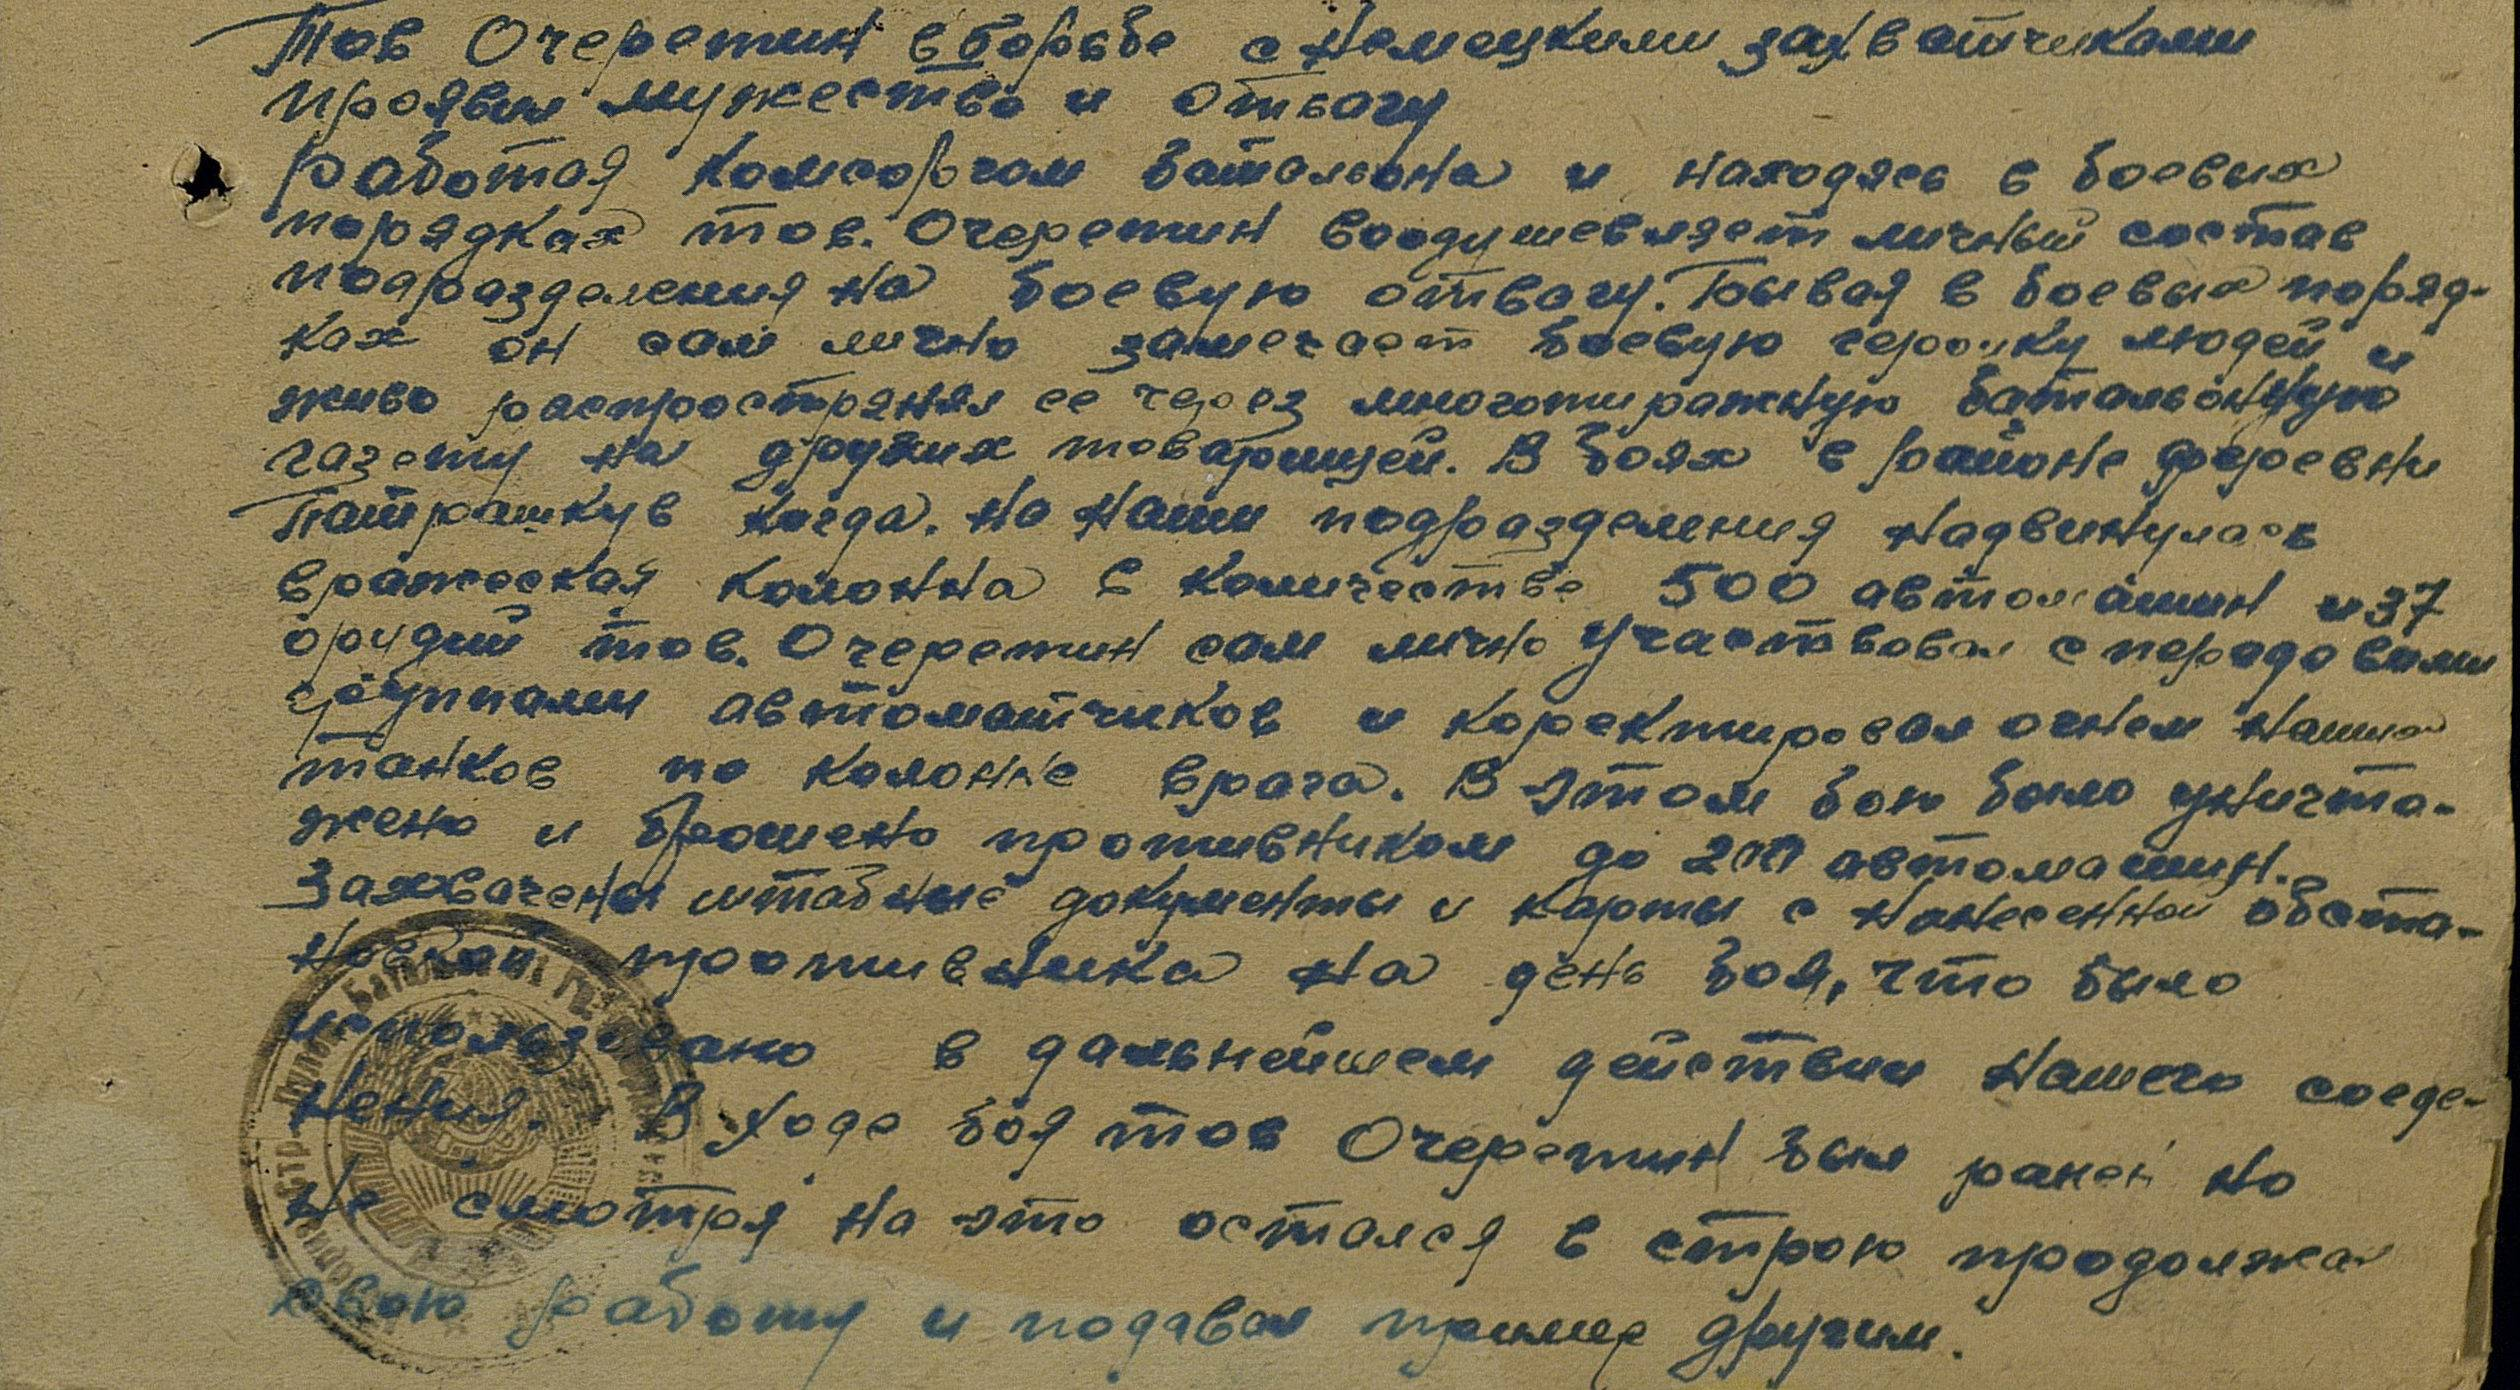 Тов Очеретин в борьбе с немецкими захватчиками
проявил мужество и отвагу
работая комсоргом баталиона и находясь в боевых
порядках тов. Очеретин воодушевляет личный состав
подразделения на боевую отвагу. Бывая в боевых поряд-
ках он сам лично замечает боевую героику людей и
живо распространял ее через многотиражную батальонную
газету на других товарищей. В боях в районе деревни
Патрашкув когда. на наши подразделения надвинулась
вражеская колонна в количестве 500 автомашин и 37
орудий тов. Очеретин сам лично участвовал с передовыми
группами автоматчиков и коректировал огнем наших
танков по колонне врага. В этом бою было уничто-
жено и брошено противником до 200 автомашин.
Захвачены штабные документы и карты с нанесенной обста-
новкой противника на день боя, что было
использовано в дальнейшем действии нашего соеде-
нения. В ходе боя тов Очеретин был ранен но
не смотря на это остался в строю продолжал
свою работу и подавал пример другим.